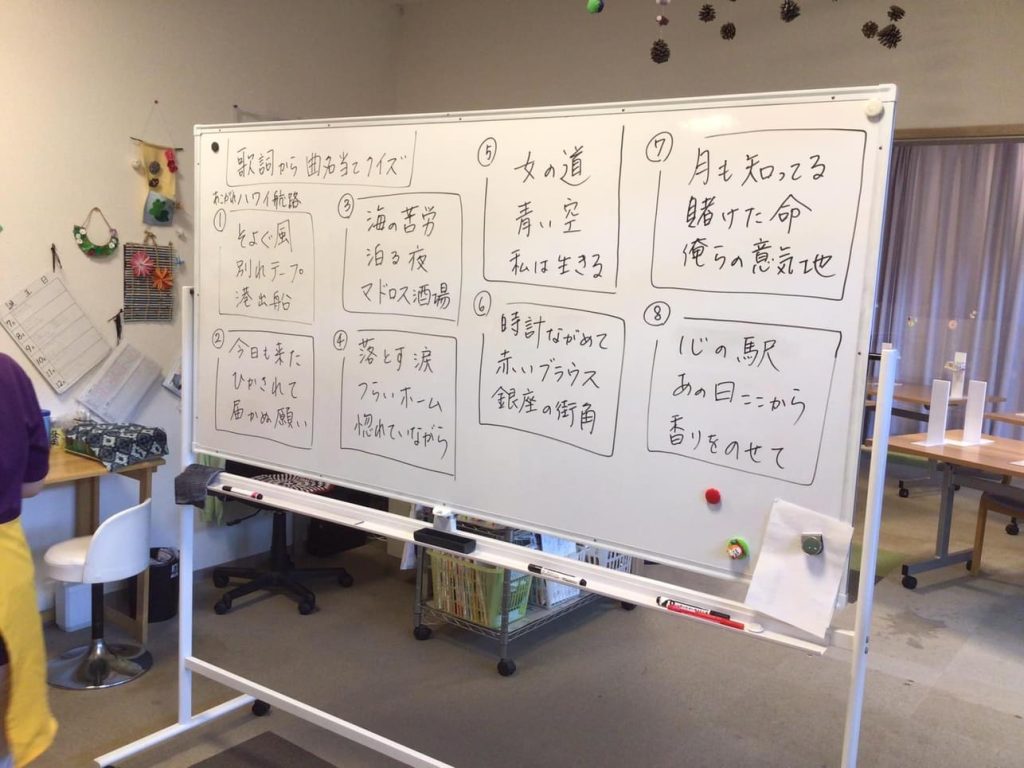 歌詞から曲名当てクイズ
あこがれハワイ航路
①
そよぐ風
別れテープ
港出船
②
今日も来た
ひかされて
届かぬ願い
③
海の苦労
泊る夜
マドロス酒場
④
落とす涙
つらいホーム
惚れていながら
⑤
女の道
青い空
私は生きる
⑥
時計ながめて
赤いブラウス
銀座の街角
⑦
月も知ってる
賭けた命
俺らの意気地
⑧
心の駅
あの日ここから
香りをのせて
土
日